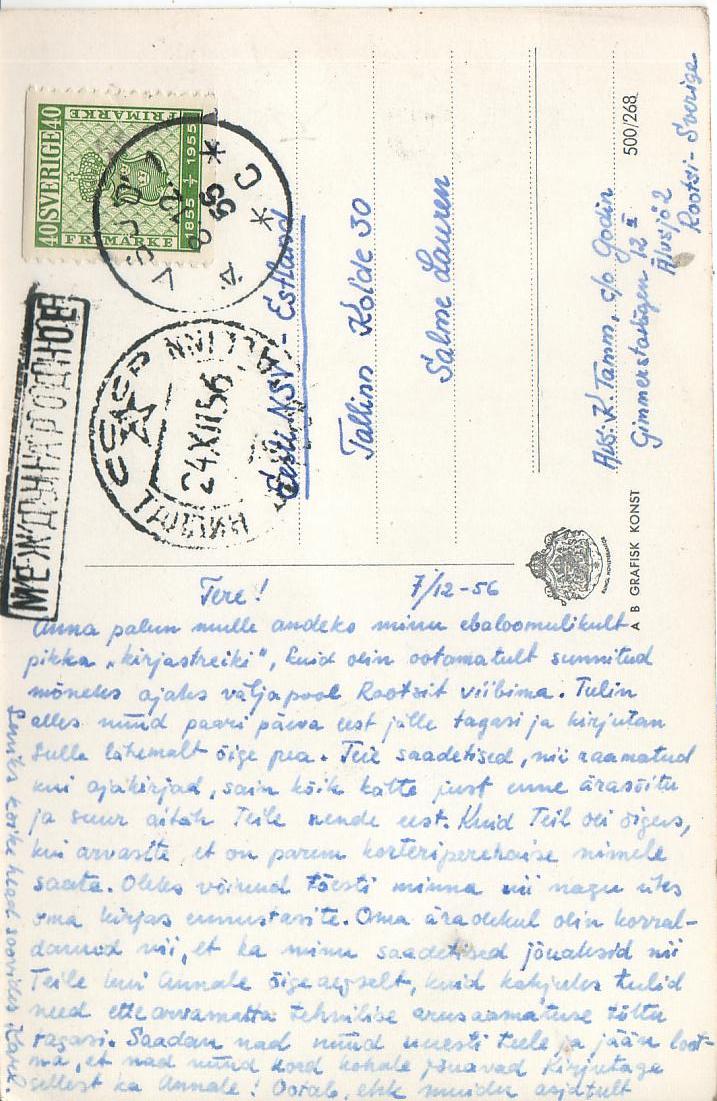 40 SVERIGE 40
FRIMÄRKE
FRIMÄRKE
1855 1/7 1955
8 12
МЕЖДУНАРОДНОЕ
СССР
TALLINN
24 XII 56
ТАЛЛИН
Eesti NSV - Estland
Tallinn Kolde 30
Salme Lauren
Aus: K. Tamm, c/o Godin
12 II
Älvsjö 2
Rootsi - Sverige
500/268
A B GRAFISK KONST
Tere! 7/12-56
Anna palun mulle andeks minu ebaloomulikult
pikka „kirjastreiki", kuid olin ootamatult sunnitud
mõneks ajaks väljapool Rootsit viibima. Tulin
alles nüüd paari päeva eest jälle tagasi ja kirjutan
Sulle lähemalt õige pea. Teie saadetised, nii raamatud
kui ajakirjad, sain kõik kätte just enne ärasõitu
ja suur aitäh Teile nende eest. Kuid Teil oli õigus,
kui arvasite, et on parem korteriperenaise nimele
saata. Oleks võinud tõesti minna nii nagu üks
oma kirjas ennustasite. Oma äraolekul olin korral-
danud nii, et ka minu saadetised jõuaksid nii
Teile kui Annale õigeaegselt, kuid kahjuks tulid
need ettearvamatta tehnilise arusaamatuse tõttu
tagasi. Saadan nad nüüd uuesti teele ja jään loot-
ma, et nad nüüd kord kohale jõuavad. Kirjutage
sellest ka Annale! Ootab, ehk muidu asjatult
kõike head soovides